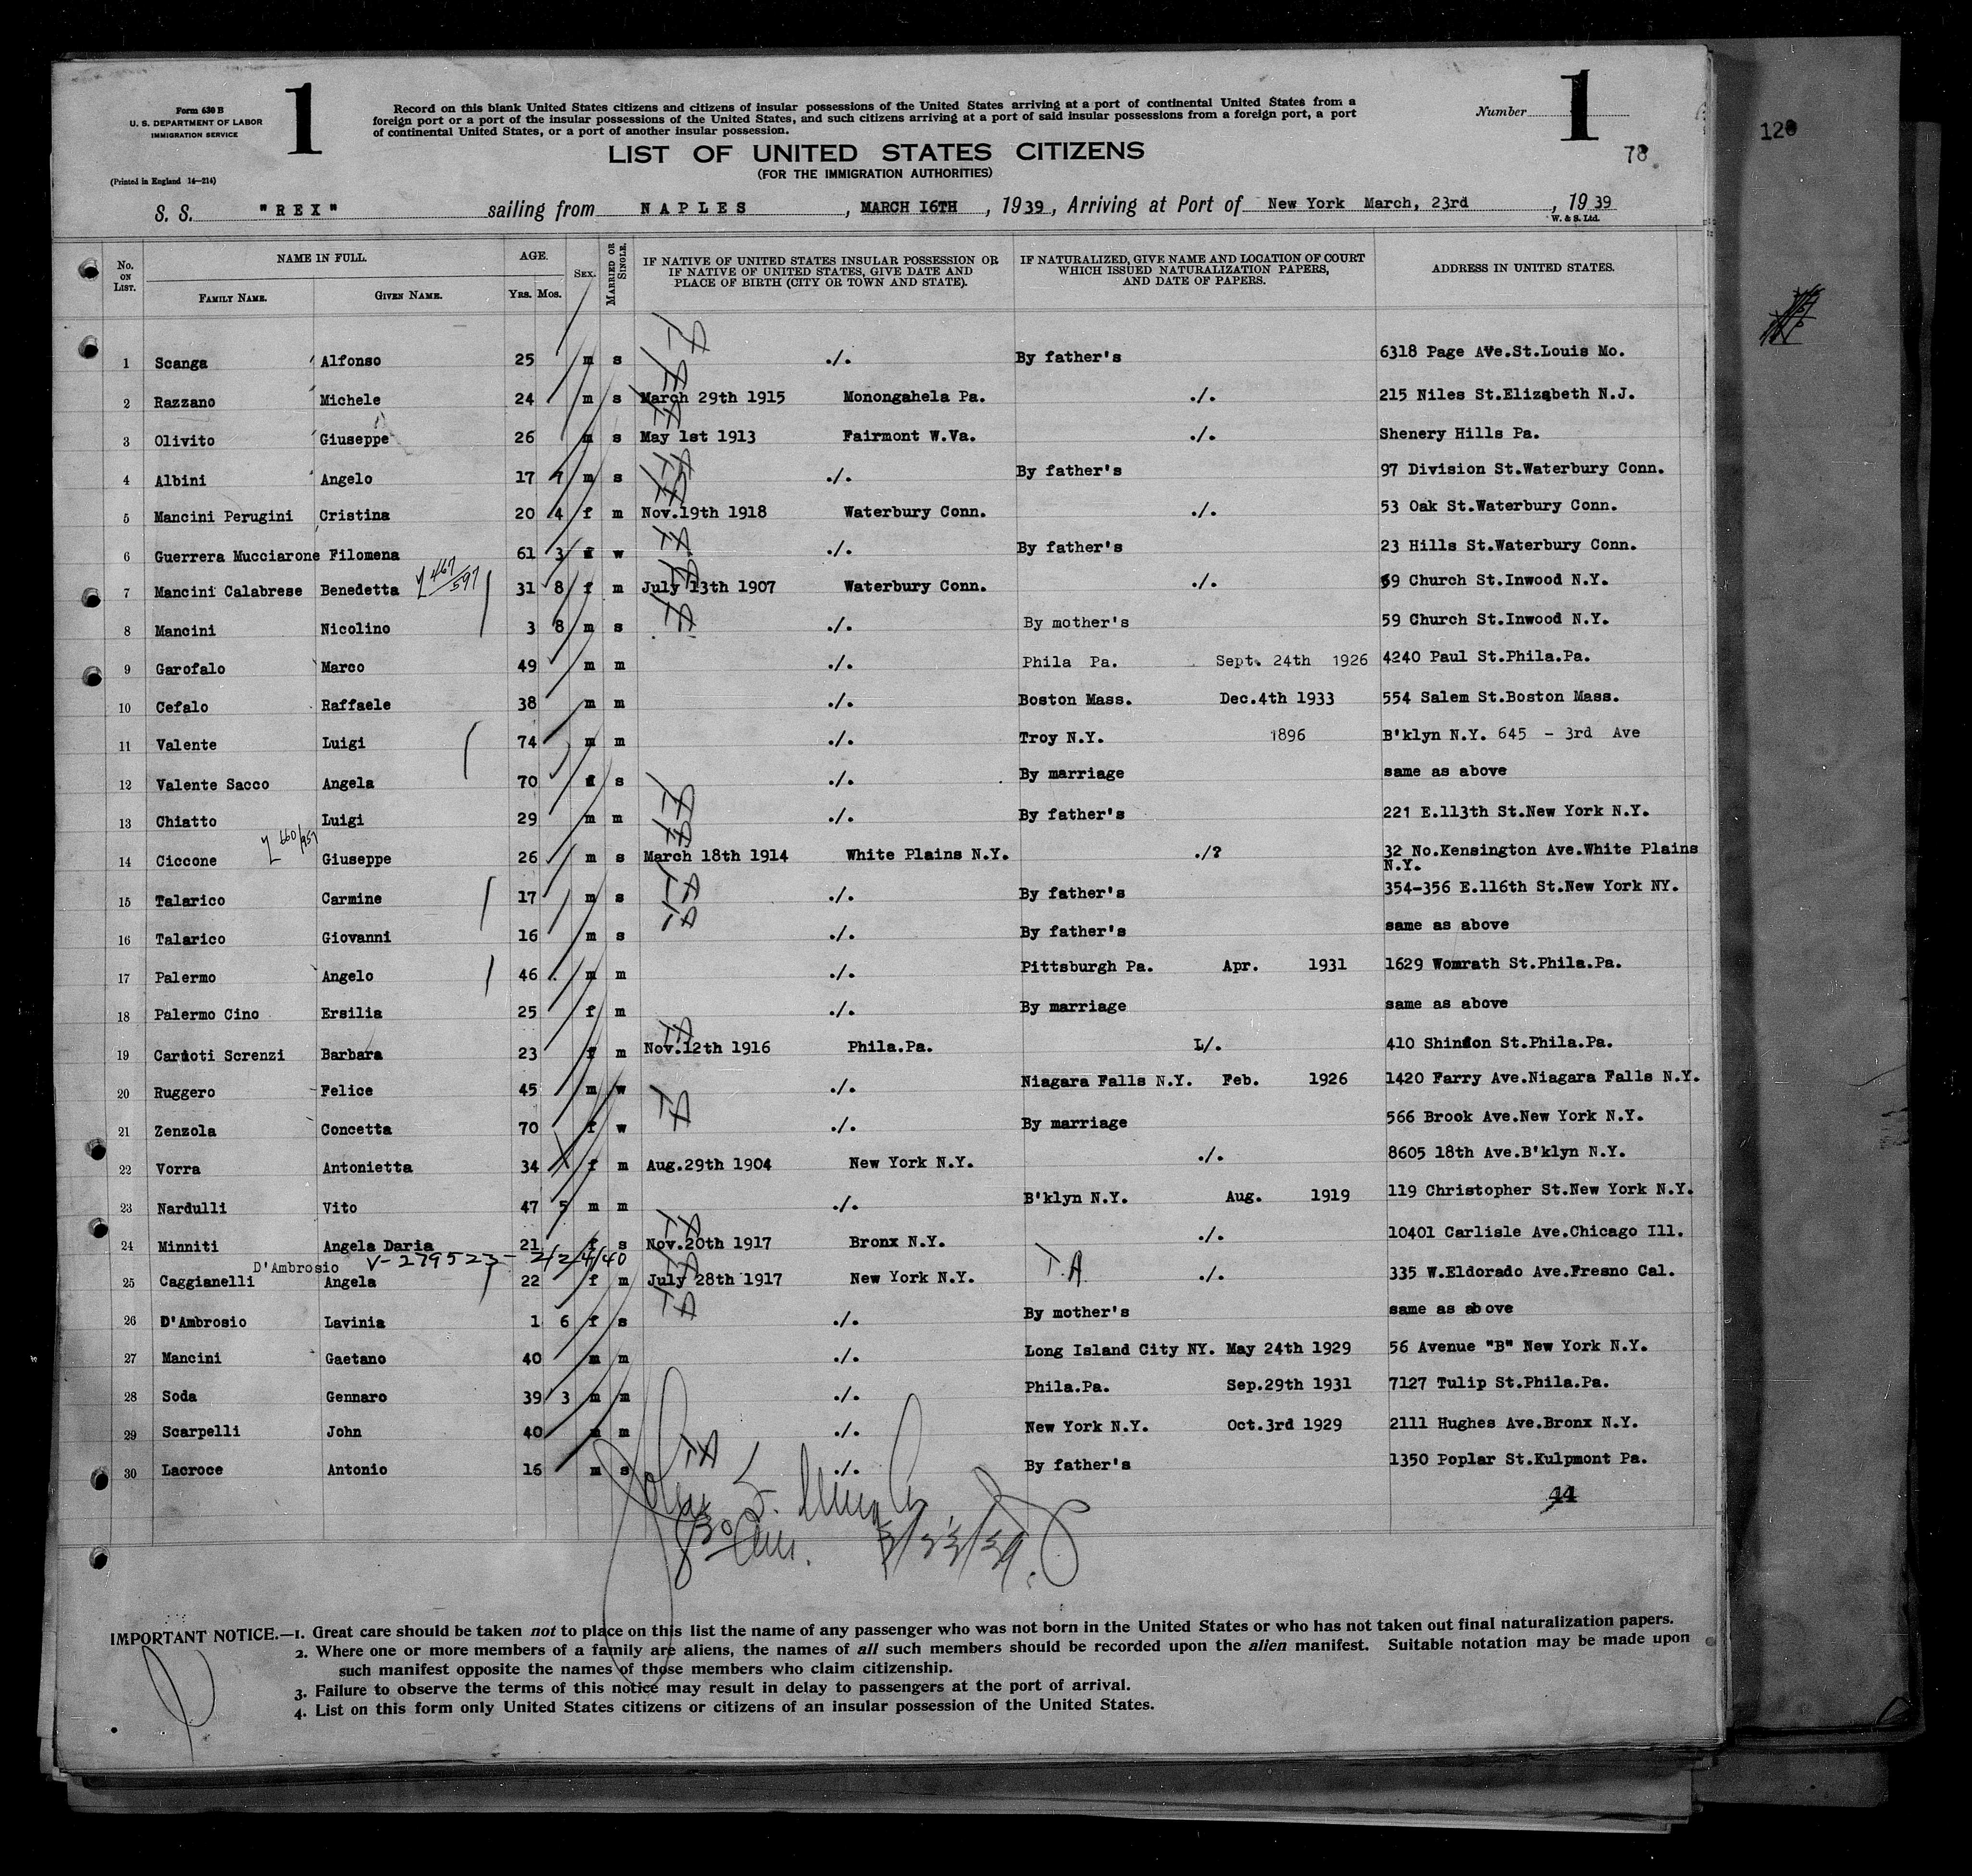 1
1
Form 630 B
U. S. DEPARTMENT OF LABOR
IMMIGRATION SERVICE
(Printed in England 14—214)
Record on this blank United States citizens and citizens of insular possessions of the United States arriving at a port of continental United States from a
foreign port or a port of the insular possessions of the United States, and such citizens arriving at a port of said insular possessions from a foreign port, a port
of continental United States, or a port of another insular possession.
Number
78
120
LIST OF UNITED STATES CITIZENS
(FOR THE IMMIGRATION AUTHORITIES)
S. S. "REX" sailing from NAPLES, MARCH I6TH, 1939, Arriving at Port of New York March, 23rd, 1939
W. & S. Ltd.
No. ON LIST. NAME IN FULL. FAMILY NAME. GIVEN NAME. AGE. YRS. MOS. SEX. MARRIED OR SINGLE. IF NATIVE OF UNITED STATES INSULAR POSSESSION OR IF NATIVE OF UNITED STATES, GIVE DATE AND PLACE OF BIRTH (CITY OR TOWN AND STATE). IF NATURALIZED, GIVE NAME AND LOCATION OF COURT WHICH ISSUED NATURALIZATION PAPERS, AND DATE OF PAPERS. ADDRESS IN UNITED STATES.
1 Scanga Alfonso 25 m s TA ./. By father's 6318 Page AVe.St.Louis Mo.
2 Razzano Michele 24 m s TA March 29th 1915 Monongahela Pa. ./. 215 Niles St.Elizabeth N.J.
3 Olivito Giuseppe 26 m s TA May 1st 1913 Fairmont W.Va. ./. Shenery Hills Pa.
4 Albini Angelo 17 7 m s TA ./. By father's 97 Division St.Waterbury Conn.
5 Mancini Perugini Cristina 20 4 f m TA Nov.19th 1918 Waterbury Conn. ./. 53 Oak St.Waterbury Conn.
6 Guerrera Mucciarone Filomena 61 3 f w TA ./. By father's 23 Hills St.Waterbury Conn.
7 Mancini Calabrese Benedetta 467/597 31 8 f m TA July 13th 1907 Waterbury Conn. ./. 59 Church St.Inwood N.Y.
8 Mancini Nicolino 3 8 m s TA ./. By mother's 59 Church St.Inwood N.Y.
9 Garofalo Marco 49 m m ./. Phila Pa. Sept. 24th 1926 4240 Paul St.Phila.Pa.
10 Cefalo Raffaele 38 m m ./. Boston Mass. Dec.4th 1933 554 Salem St.Boston Mass.
11 Valente Luigi 74 m m ./. Troy N.Y. 1896 B'klyn N.Y. 645 - 3rd Ave
12 Valente Sacco Angela 70 f s ./. By marriage same as above
13 Chiatto Luigi 29 m m TA ./. By father's 221 E.113th St.New York N.Y.
14 Ciccone Giuseppe 26 m s TA March 18th 1914 White Plains N.Y. ./? 32 No.Kensington Ave.White Plains
N.Y.
15 Talarico Carmine 17 m s TA ./. By father's 354-356 E.116th St.New York NY.
16 Talarico Giovanni 16 m s TA ./. By father's same as above
17 Palermo Angelo 46 m m ./. Pittsburgh Pa. Apr. 1931 1629 Womrath St.Phila.Pa.
18 Palermo Cino Ersilia 25 f m ./. By marriage same as above
19 Screnzi Barbara 23 f m TA Nov.12th 1916 Phila.Pa. L/. 410 St.Phila.Pa.
20 Ruggero Felice 45 m w ./. Niagara Falls N.Y. Feb. 1926 1420 Farry Ave.Niagara Falls N.Y.
21 Zenzola Concetta 70 f w TA ./. By marriage 566 Brook Ave.New York N.Y.
22 Vorra Antonietta 34 f m Aug.29th 1904 New York N.Y. ./. 8605 18th Ave.B'klyn N.Y.
23 Nardulli Vito 47 5 m m ./. B'klyn N.Y. Aug. 1919 119 Christopher St.New York N.Y.
24 Minniti Angela Daria 21 f s TA Nov.20th 1917 Bronx N.Y. ./. 10401 Carlisle Ave.Chicago Ill.
D'Ambrosio V-279523- 2/24/40
25 Caggianelli Angela 22 f m TA July 28th 1917 New York N.Y. T.A. ./. 335 W.Eldorado Ave.Fresno Cal.
26 D'Ambrosio Lavinia 1 6 f s TA ./. By mother's same as above
27 Mancini Gaetano 40 m m ./. Long Island City NY. May 24th 1929 56 Avenue "B" New York N.Y.
28 Soda Gennaro 39 3 m m ./. Phila.Pa. Sep.29th 1931 7127 Tulip St.Phila.Pa.
29 Scarpelli John 40 m m ./. New York N.Y. Oct.3rd 1929 2111 Hughes Ave.Bronx N.Y.
30 Lacroce Antonio 16 m s TA ./. By father's 1350 Poplar St.Kulpmont Pa.
3/23/39.
IMPORTANT NOTICE.—1. Great care should be taken not to place on this list the name of any passenger who was not born in the United States or who has not taken out final naturalization papers.
2. Where one or more members of a family are aliens, the names of all such members should be recorded upon the alien manifest. Suitable notation may be made upon
such manifest opposite the names of those members who claim citizenship.
3. Failure to observe the terms of this notice may result in delay to passengers at the port of arrival.
4. List on this form only United States citizens or citizens of an insular possession of the United States.